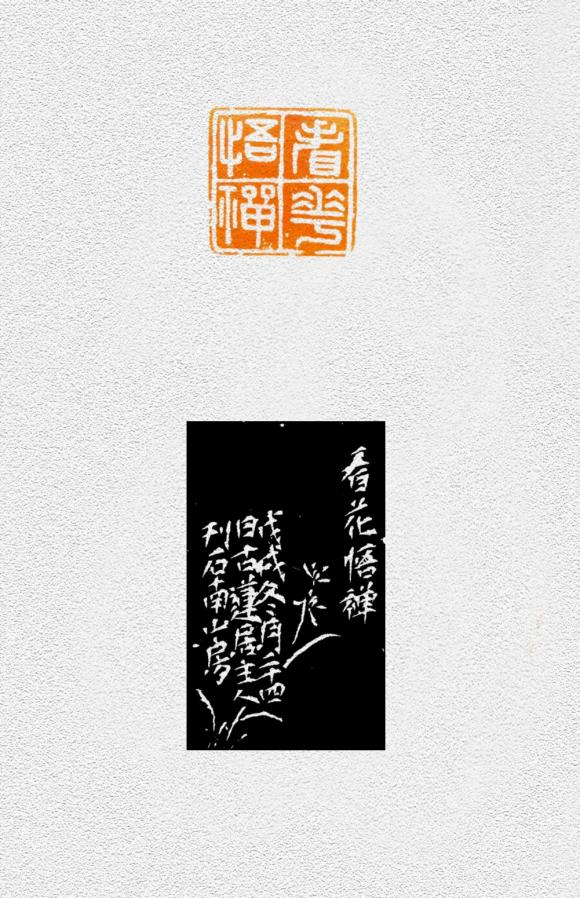 看華
悟禪
看花悟禅
戊戌冬月二十四
日古蓮居主人
刊石南山房